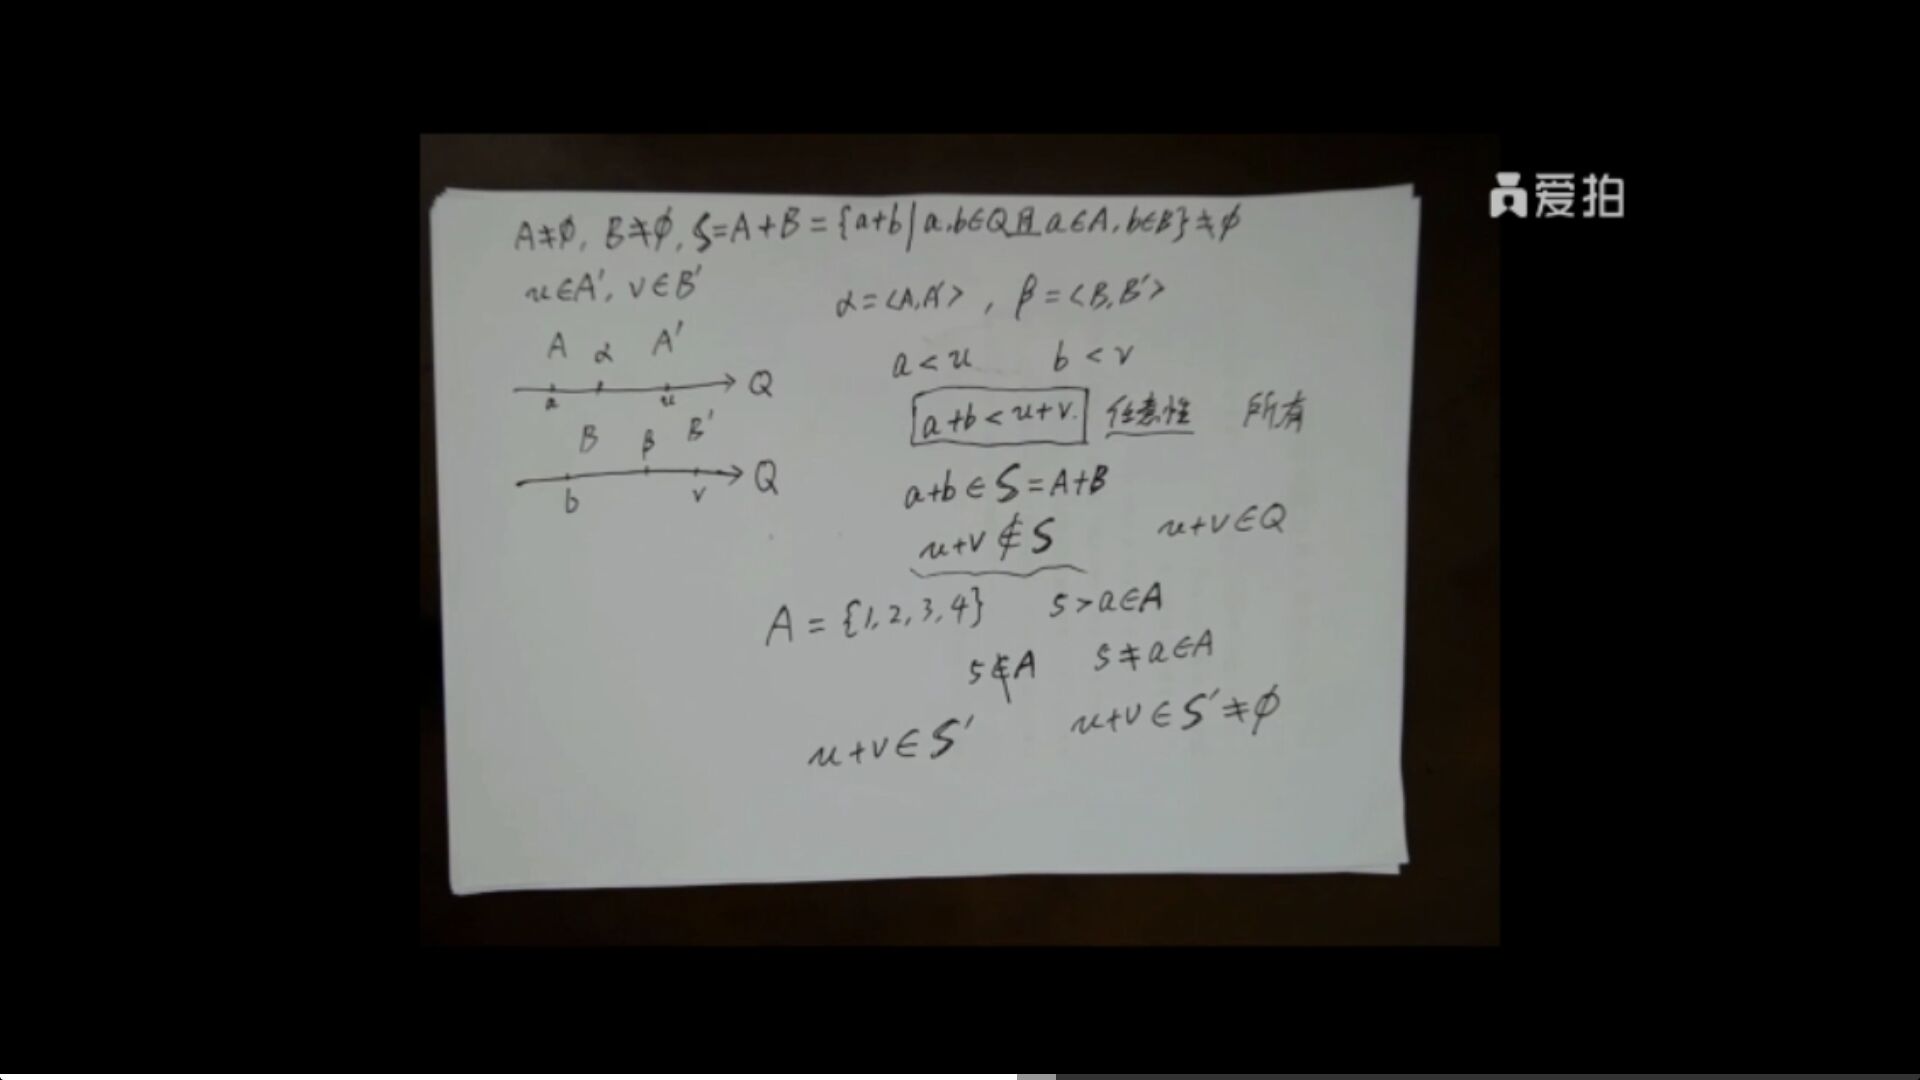 爱拍
A≠∅, B≠∅, S=A+B={a+b|a,b∈Q且a∈A,b∈B}≠∅
u∈A', v∈B'
α=<A,A'>, β=<B,B'>
A α A'
a u Q
B β B'
b v Q
a<u b<v
a+b<u+v. 任意性 所有
a+b∈S=A+B
u+v∉S u+v∈Q
A={1,2,3,4} 5>a∈A
5∉A 5≠a∈A
u+v∈S' u+v∈S'≠∅